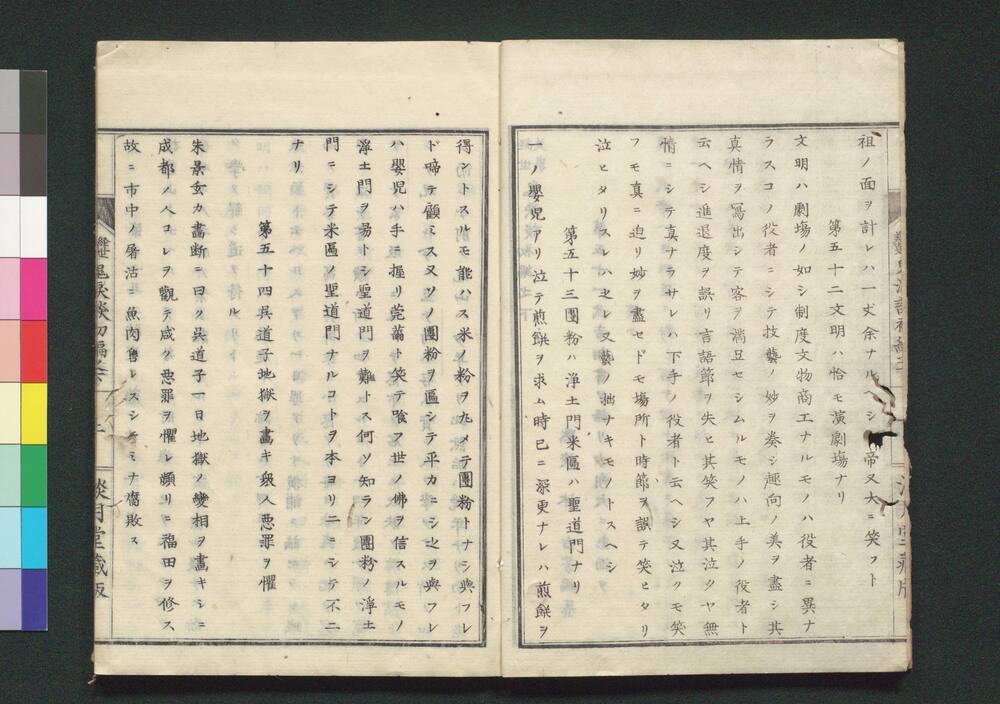 祖ノ面ヲ計レハ一丈余ナルヘシ帝又大ニ笑フト
第五十二文明ハ恰モ演劇場ナリ
文明ハ劇場ノ如シ制度文物商工ナルモノハ役者ニ異ナ
ラスコノ役者ニシテ技藝ノ妙ヲ奏シ趣向ノ美ヲ盡シ其
真情ヲ冩出シテ客ヲ満且セシムルモノハ上手ノ役者ト
云ヘシ進退度ヲ誤リ言語節ヲ失ヒ其笑フヤ其泣クヤ無
情ニシテ真ナラサレハ下手ノ役者ト云ヘシ又泣クモ笑
フモ真ニ迫リ妙ヲ盡セドモ場所ト時節ヲ誤テ笑ヒタリ
泣ヒタリスレハ之レ又藝ノ拙ナキモノトスヘシ
第五十三團粉ハ浄土門米區ハ聖道門ナリ
一ノ嬰児アリ泣テ煎餅ヲ求ム時已ニ深更ナレハ煎餅ヲ
得ントスルモ能ハス米ノ粉ヲ丸メテ團粉トナシ與フレ
ド啼テ顧ミス又ソノ團粉ヲ區シテ平カニシ之ヲ與フレ
ハ嬰児ハ手ニ握リ莞薾ト笑テ喰フ世ノ佛ヲ信スルモノ
淨土門ヲ易トシ聖道門ヲ難トス何ソ知ラン團粉ノ淨土
門ニシテ米區ノ聖道門ナルコトヲ本ヨリ二ニシテ不二
ナリ
第五十四呉道子地獄ヲ畵キ衆人悪罪ヲ懼
朱景玄カ畵断ニ曰ク呉道子一日地獄ノ變相ヲ畵キシニ
成都ノ人コレヲ觀テ咸ク悪罪ヲ懼レ頻リニ福田ヲ修ス
故ニ市中ノ屠沽ニ魚肉售レスシテミナ腐敗ス